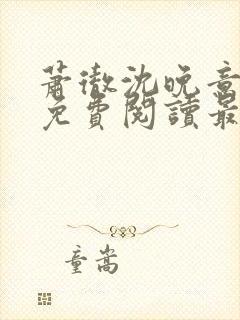 蕭徹沈晚意
免費閱讀最
童嵩